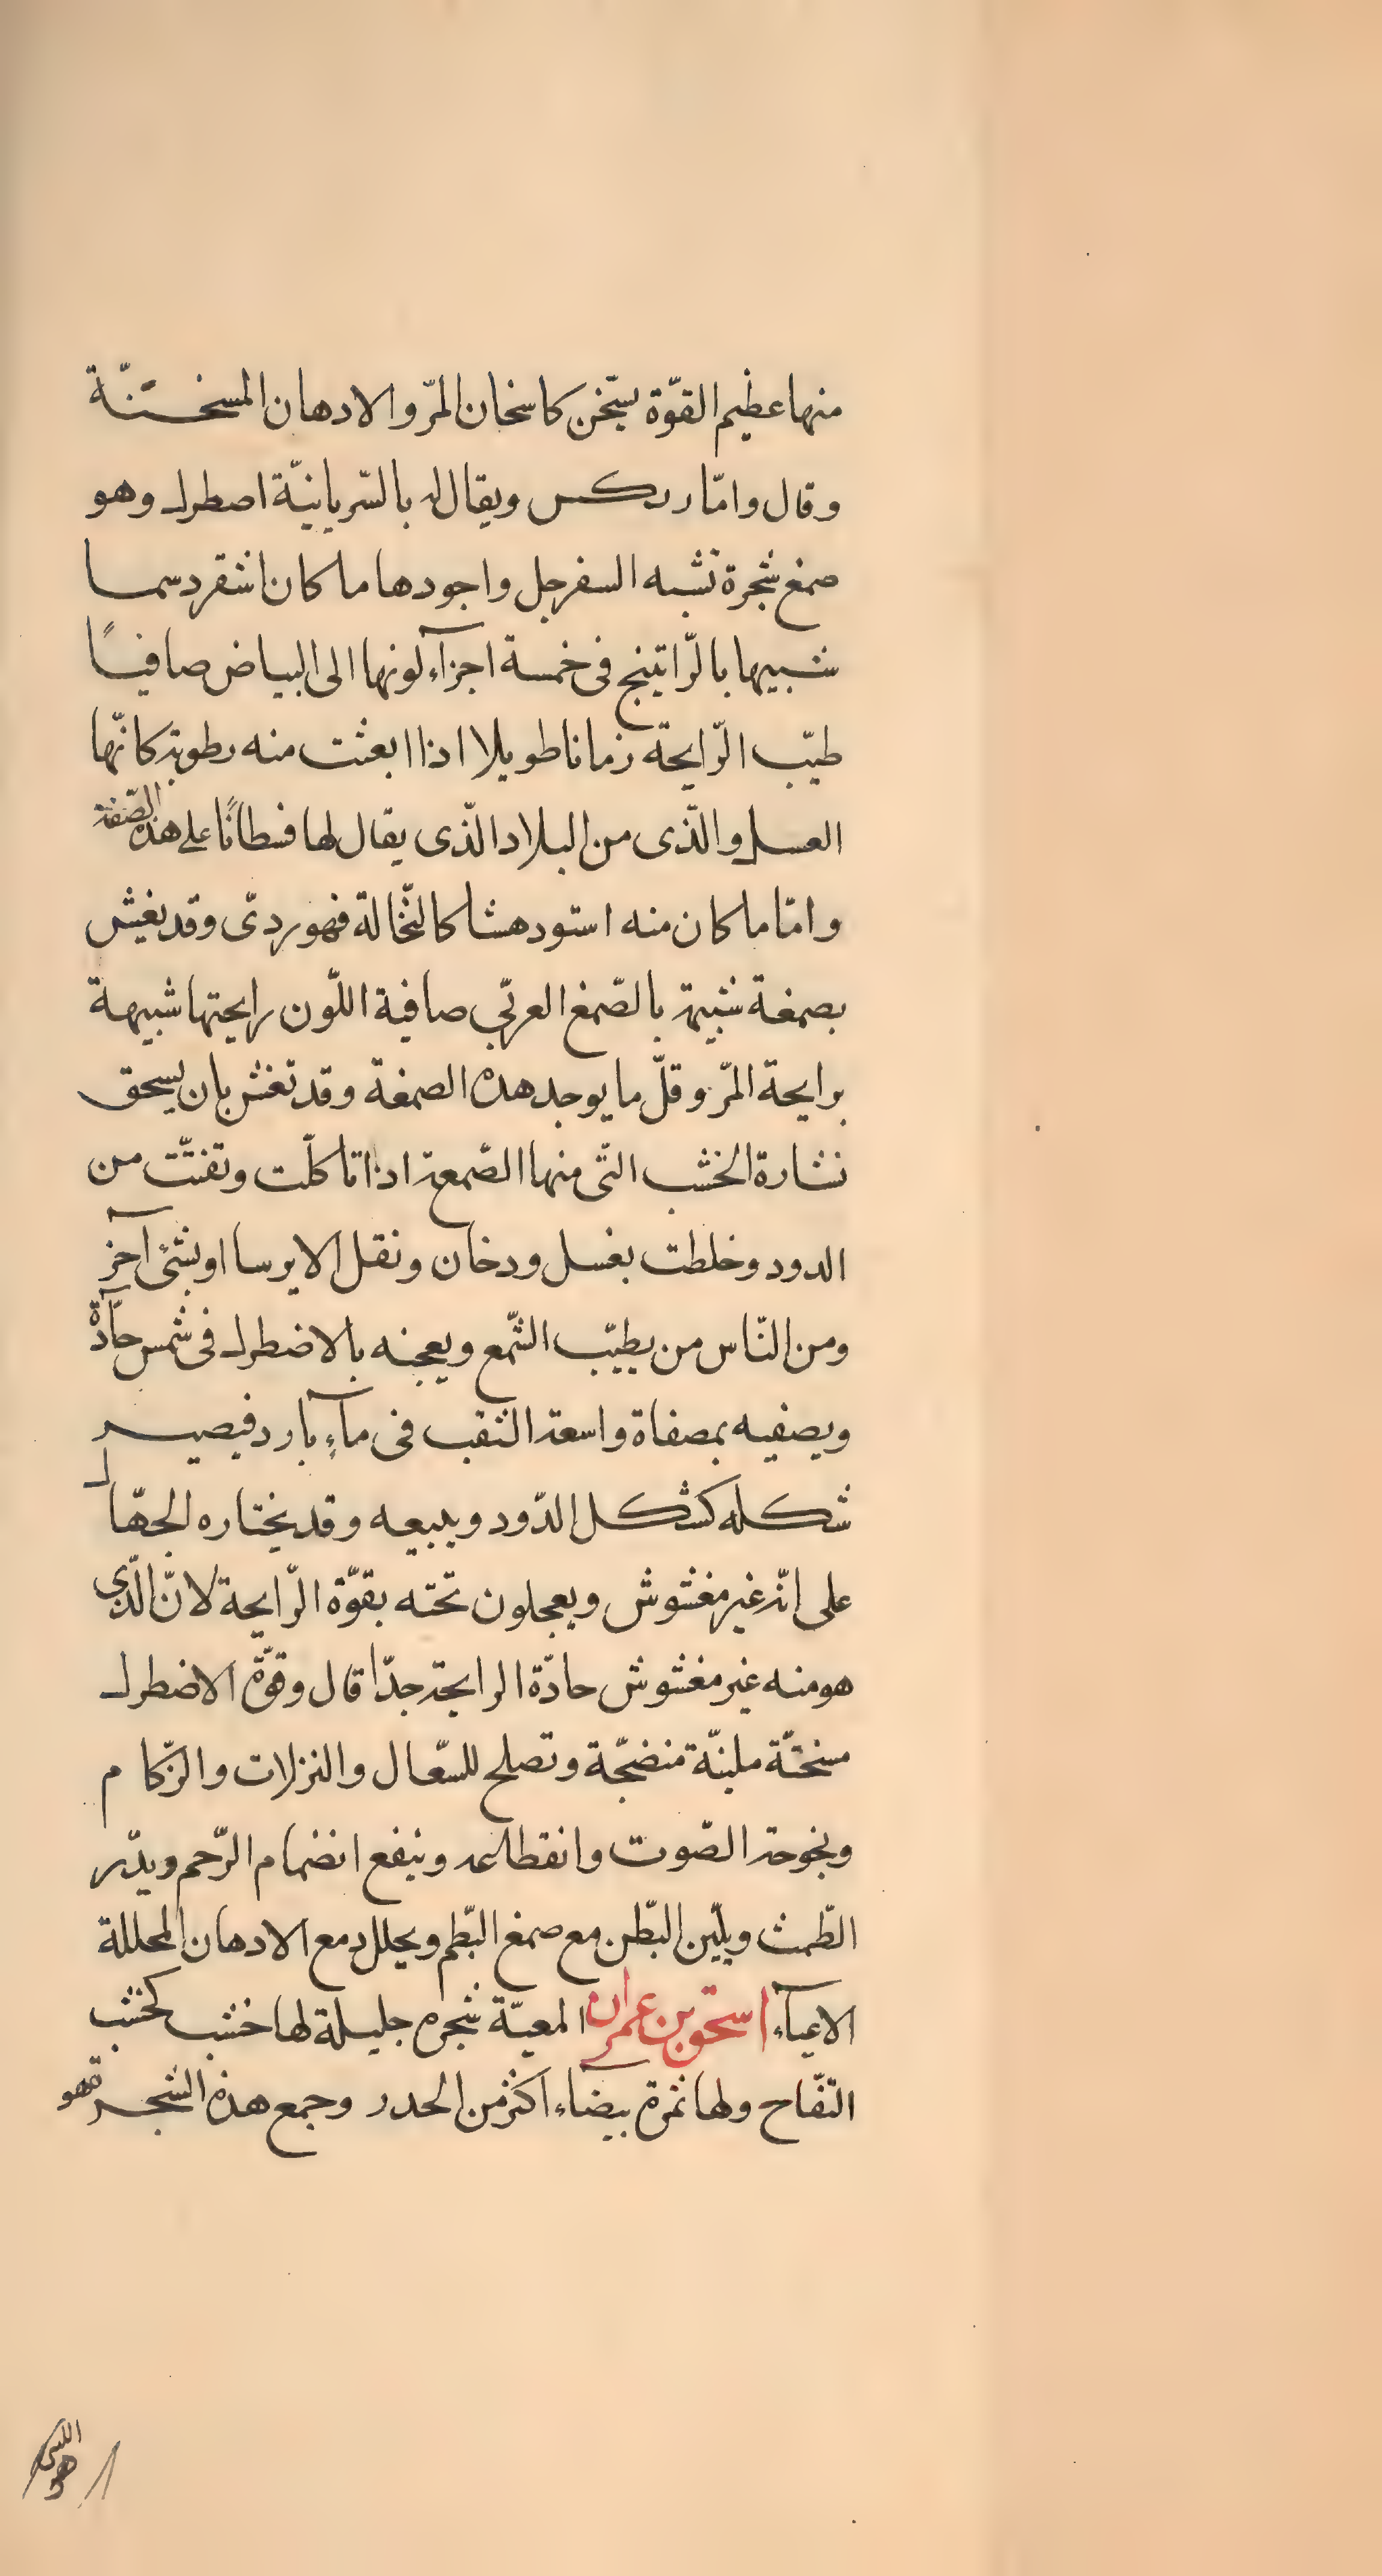 منها عظيم القوّة يسّخن كاسخان المرّ والادهان المسخّنة
وقال وامّا ردكس ويقال له بالسّريانيّة اصطرك وهو
صمغ شجرة تشبه السفرجل واجودها ما كان اشقر دسما
شبيها بالرّاتينج فى خمسة اجزآء لونها الى البياض صافيًا
طيّب الرّايحة زمانا طويلا اذا ابعثت منه رطوبة كانّها
العسل والّذى من البلاد الّذى يقال لها فسطانًا على هذه الصّفة
وامّا ما كان منه استود هشا كالنّخالة فهو ردىّ وقد يغش
بصمغة شبيهة بالصّمغ العربّي صافية اللّون رايحتها شبيهة
برايحة المرّ وقلّ ما يوجد هذه الصمغة وقد تغش بان يسحق
نشارة الخشب التّى منها الصّمعة اذا تاكلّت وتفتّت من
الدود وخلطت بغسل ودخان ونقل الايرسا او بشئ آخر
ومن النّاس من يطيّب الشّمع ويعجنه بالاضطرك فى شمس حآدّة
ويصفيه بمصفاة واسعة الثقب فى مآءٍ بارد فيصير
شكله كشكل الدّود ويبيعه وقد يختاره الجهّال
على انّه غير مغشوش ويعجلون تحته بقوّة الرّايحة لانّ الّذى
هو منه غير مغشوش حادّة الرايحة جدّا قال وقوّة الاضطرك
مسخنّة ملينّة منضجّة وتصلح للسّعال والنزلات والزّكام
وبخوحة الصّوت وانقطاعه وينفع انضمام الرّحم ويدّر
الطّمث ويليّن البّطن مع صمغ البّطم ويحلل دمع الادهان المحللة
الاعيآء اسحق بن عمران المعيّة شجرة جليلة لها خشب كخشب
التّفّاح ولها ثمرة بيضآء اكثر من الحدر وجمع هذه الشجر فهو